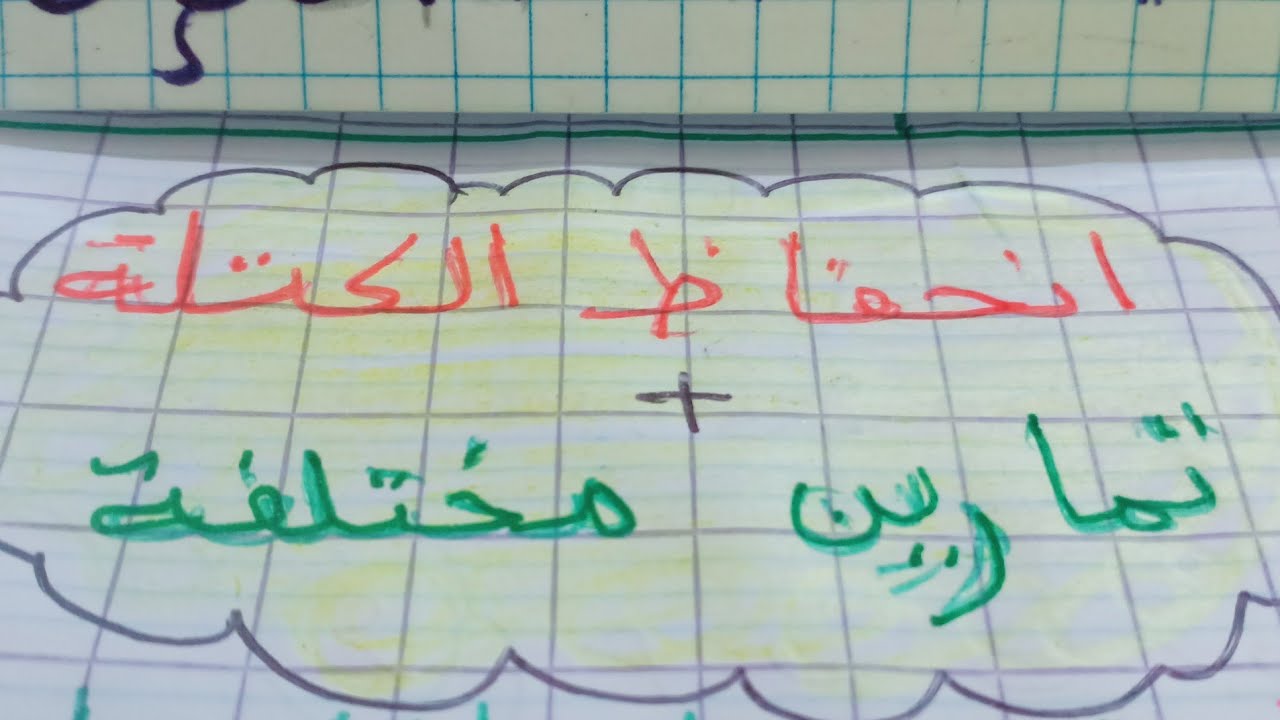 انحفاظ الكتلة
+
تمارين مختلفة